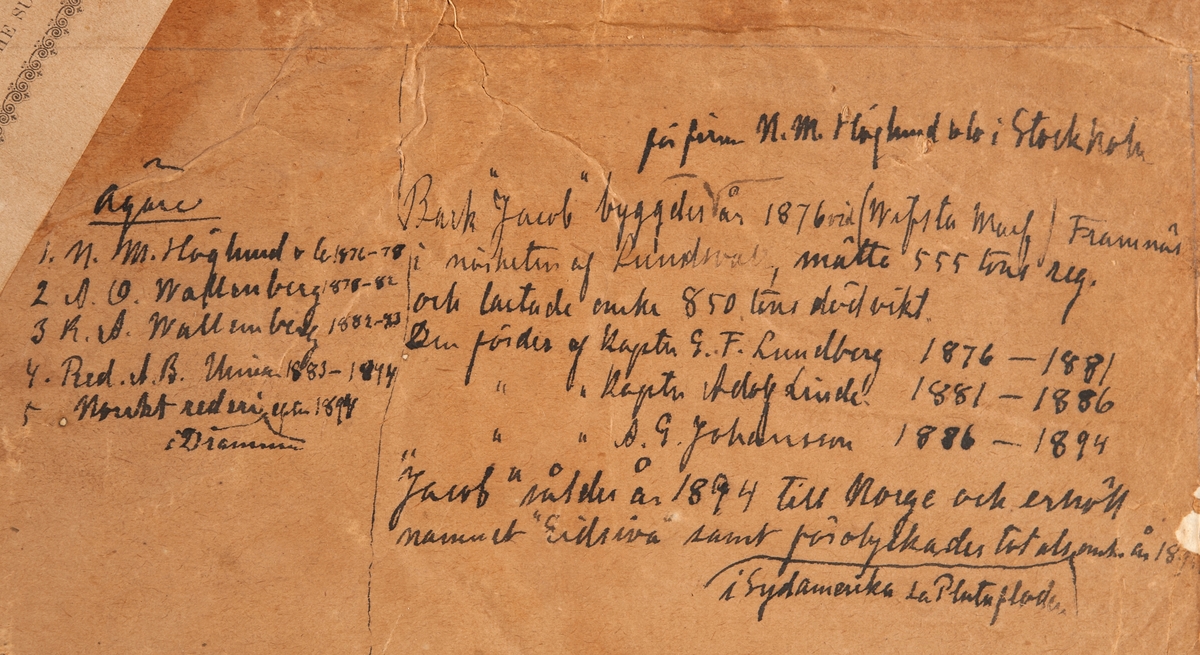 THE SU
för firm N. M. Höglund & Co i Stockholm
Ägare
1. N. M. Höglund & Co 1876-78
2 A. O. Wallenberg 1878-82
3 K. A. Wallenberg 1882-83
4. Red. A. B. Union 1883-1894
5 Norskt rederi egen 1894
i Drammen
Bark "Jacob" byggdes år 1876 vid (Wifsta Warf) Framnäs
i närheten af Sundsvall, mätte 555 tons reg.
och lastade omkr 850 tons dödvikt.
Den fördes af Kaptn E. F. Lundberg 1876 — 1881
" " Kaptn Adolf Linde 1881 — 1886
" " A. G. Johansson 1886 — 1894
"Jacob" såldes år 1894 till Norge och erhöll
namnet "Eidsiva" samt förolyckades totalt omkr år 18
i Sydamerika La Platafloden